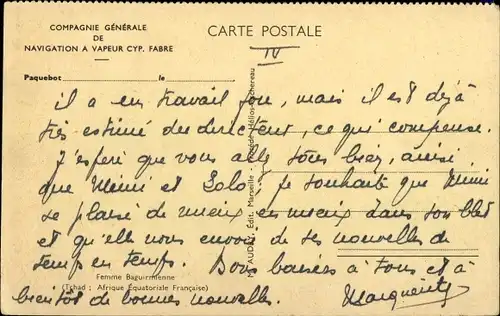 COMPAGNIE GÉNÉRALE
DE
NAVIGATION A VAPEUR CYP. FABRE
CARTE POSTALE
IV
Paquebot le
il a eu travail fou, mais il est déjà
très estimé du directeur, ce qui compense.
J'espère que vous allez tous bien, ainsi
que Mimi et Lolo. Je souhaite que Mimi
se plaise de mieux en mieux dans son
et qu'elle nous envoie de ses nouvelles de
temps en temps. Bons baisers à tous et à
bientôt de bonnes nouvelles. Marguerite
Femme Baguirmienne
(Tchad ; Afrique Équatoriale Française)
AUDRY, Édit. Marseille